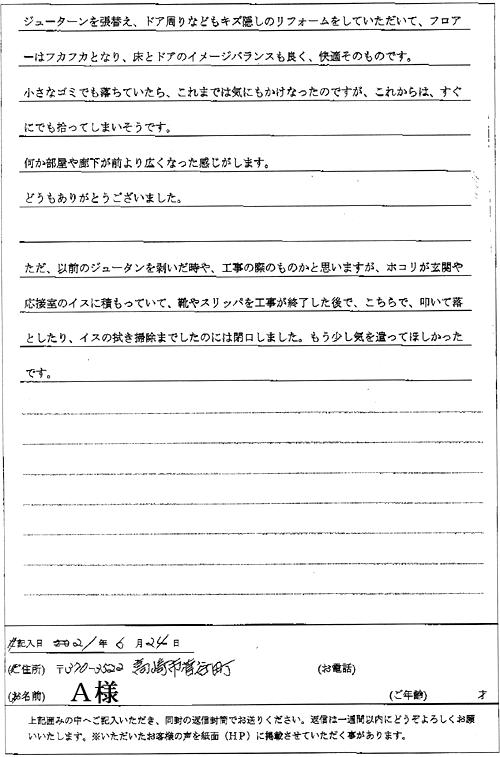 ジューターンを張替え、ドア周りなどもキズ隠しのリフォームをしていただいて、フロア
ーはフカフカとなり、床とドアのイメージバランスも良く、快適そのものです。
小さなゴミでも落ちていたら、これまでは気にもかけなったのですが、これからは、すぐ
にでも拾ってしまいそうです。
何か部屋や廊下が前より広くなった感じがします。
どうもありがとうございました。
ただ、以前のジュータンを剥いだ時や、工事の際のものかと思いますが、ホコリが玄関や
応接室のイスに積もっていて、靴やスリッパを工事が終了した後で、こちらで、叩いて落
としたり、イスの拭き掃除までしたのには閉口しました。もう少し気を遣ってほしかった
です。
記入日 21年 6月 24日
(ご住所) 〒370-3522 高崎市菅谷町 (お電話)
(お名前) A様 (ご年齢) 才
上記囲みの中へご記入いただき、同封の返信封筒でお送りください。返信は一週間以内にどうぞよろしくお願
いいたします。※いただいたお客様の声を紙面（HP）に掲載させていただく事があります。